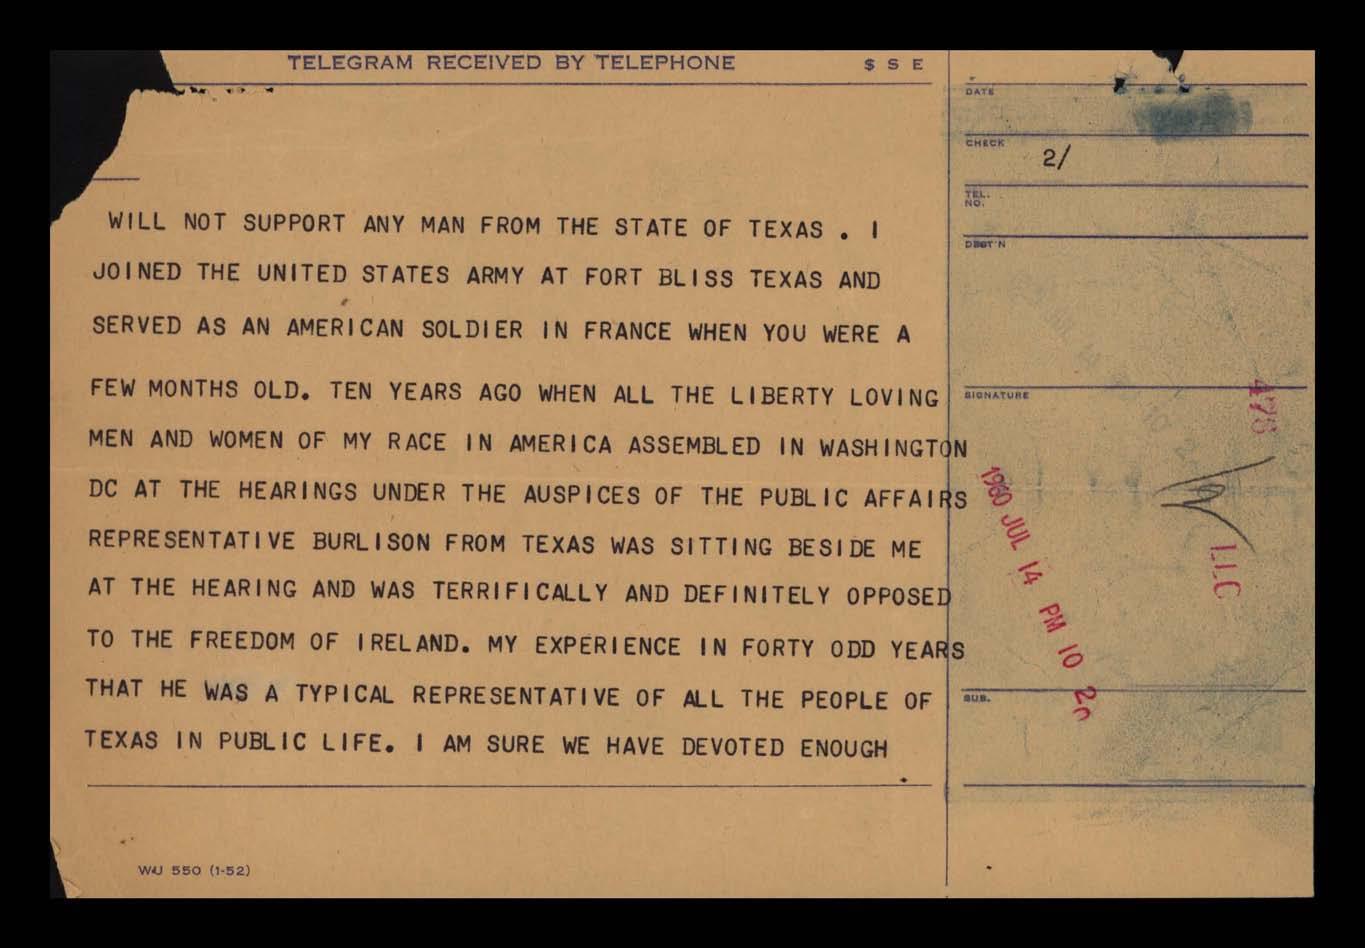 TELEGRAM RECEIVED BY TELEPHONE $ S E
DATE
CHECK 2/
TEL.
NO.
DEST'N
WILL NOT SUPPORT ANY MAN FROM THE STATE OF TEXAS . I
JOINED THE UNITED STATES ARMY AT FORT BLISS TEXAS AND
SERVED AS AN AMERICAN SOLDIER IN FRANCE WHEN YOU WERE A
FEW MONTHS OLD. TEN YEARS AGO WHEN ALL THE LIBERTY LOVING
MEN AND WOMEN OF MY RACE IN AMERICA ASSEMBLED IN WASHINGTON
DC AT THE HEARINGS UNDER THE AUSPICES OF THE PUBLIC AFFAIRS
REPRESENTATIVE BURLISON FROM TEXAS WAS SITTING BESIDE ME
AT THE HEARING AND WAS TERRIFICALLY AND DEFINITELY OPPOSED
TO THE FREEDOM OF IRELAND. MY EXPERIENCE IN FORTY ODD YEARS
THAT HE WAS A TYPICAL REPRESENTATIVE OF ALL THE PEOPLE OF
TEXAS IN PUBLIC LIFE. I AM SURE WE HAVE DEVOTED ENOUGH
SIGNATURE
478
LLC
1960 JUL 14 PM 10
SUB.
WU 550 (1-52)